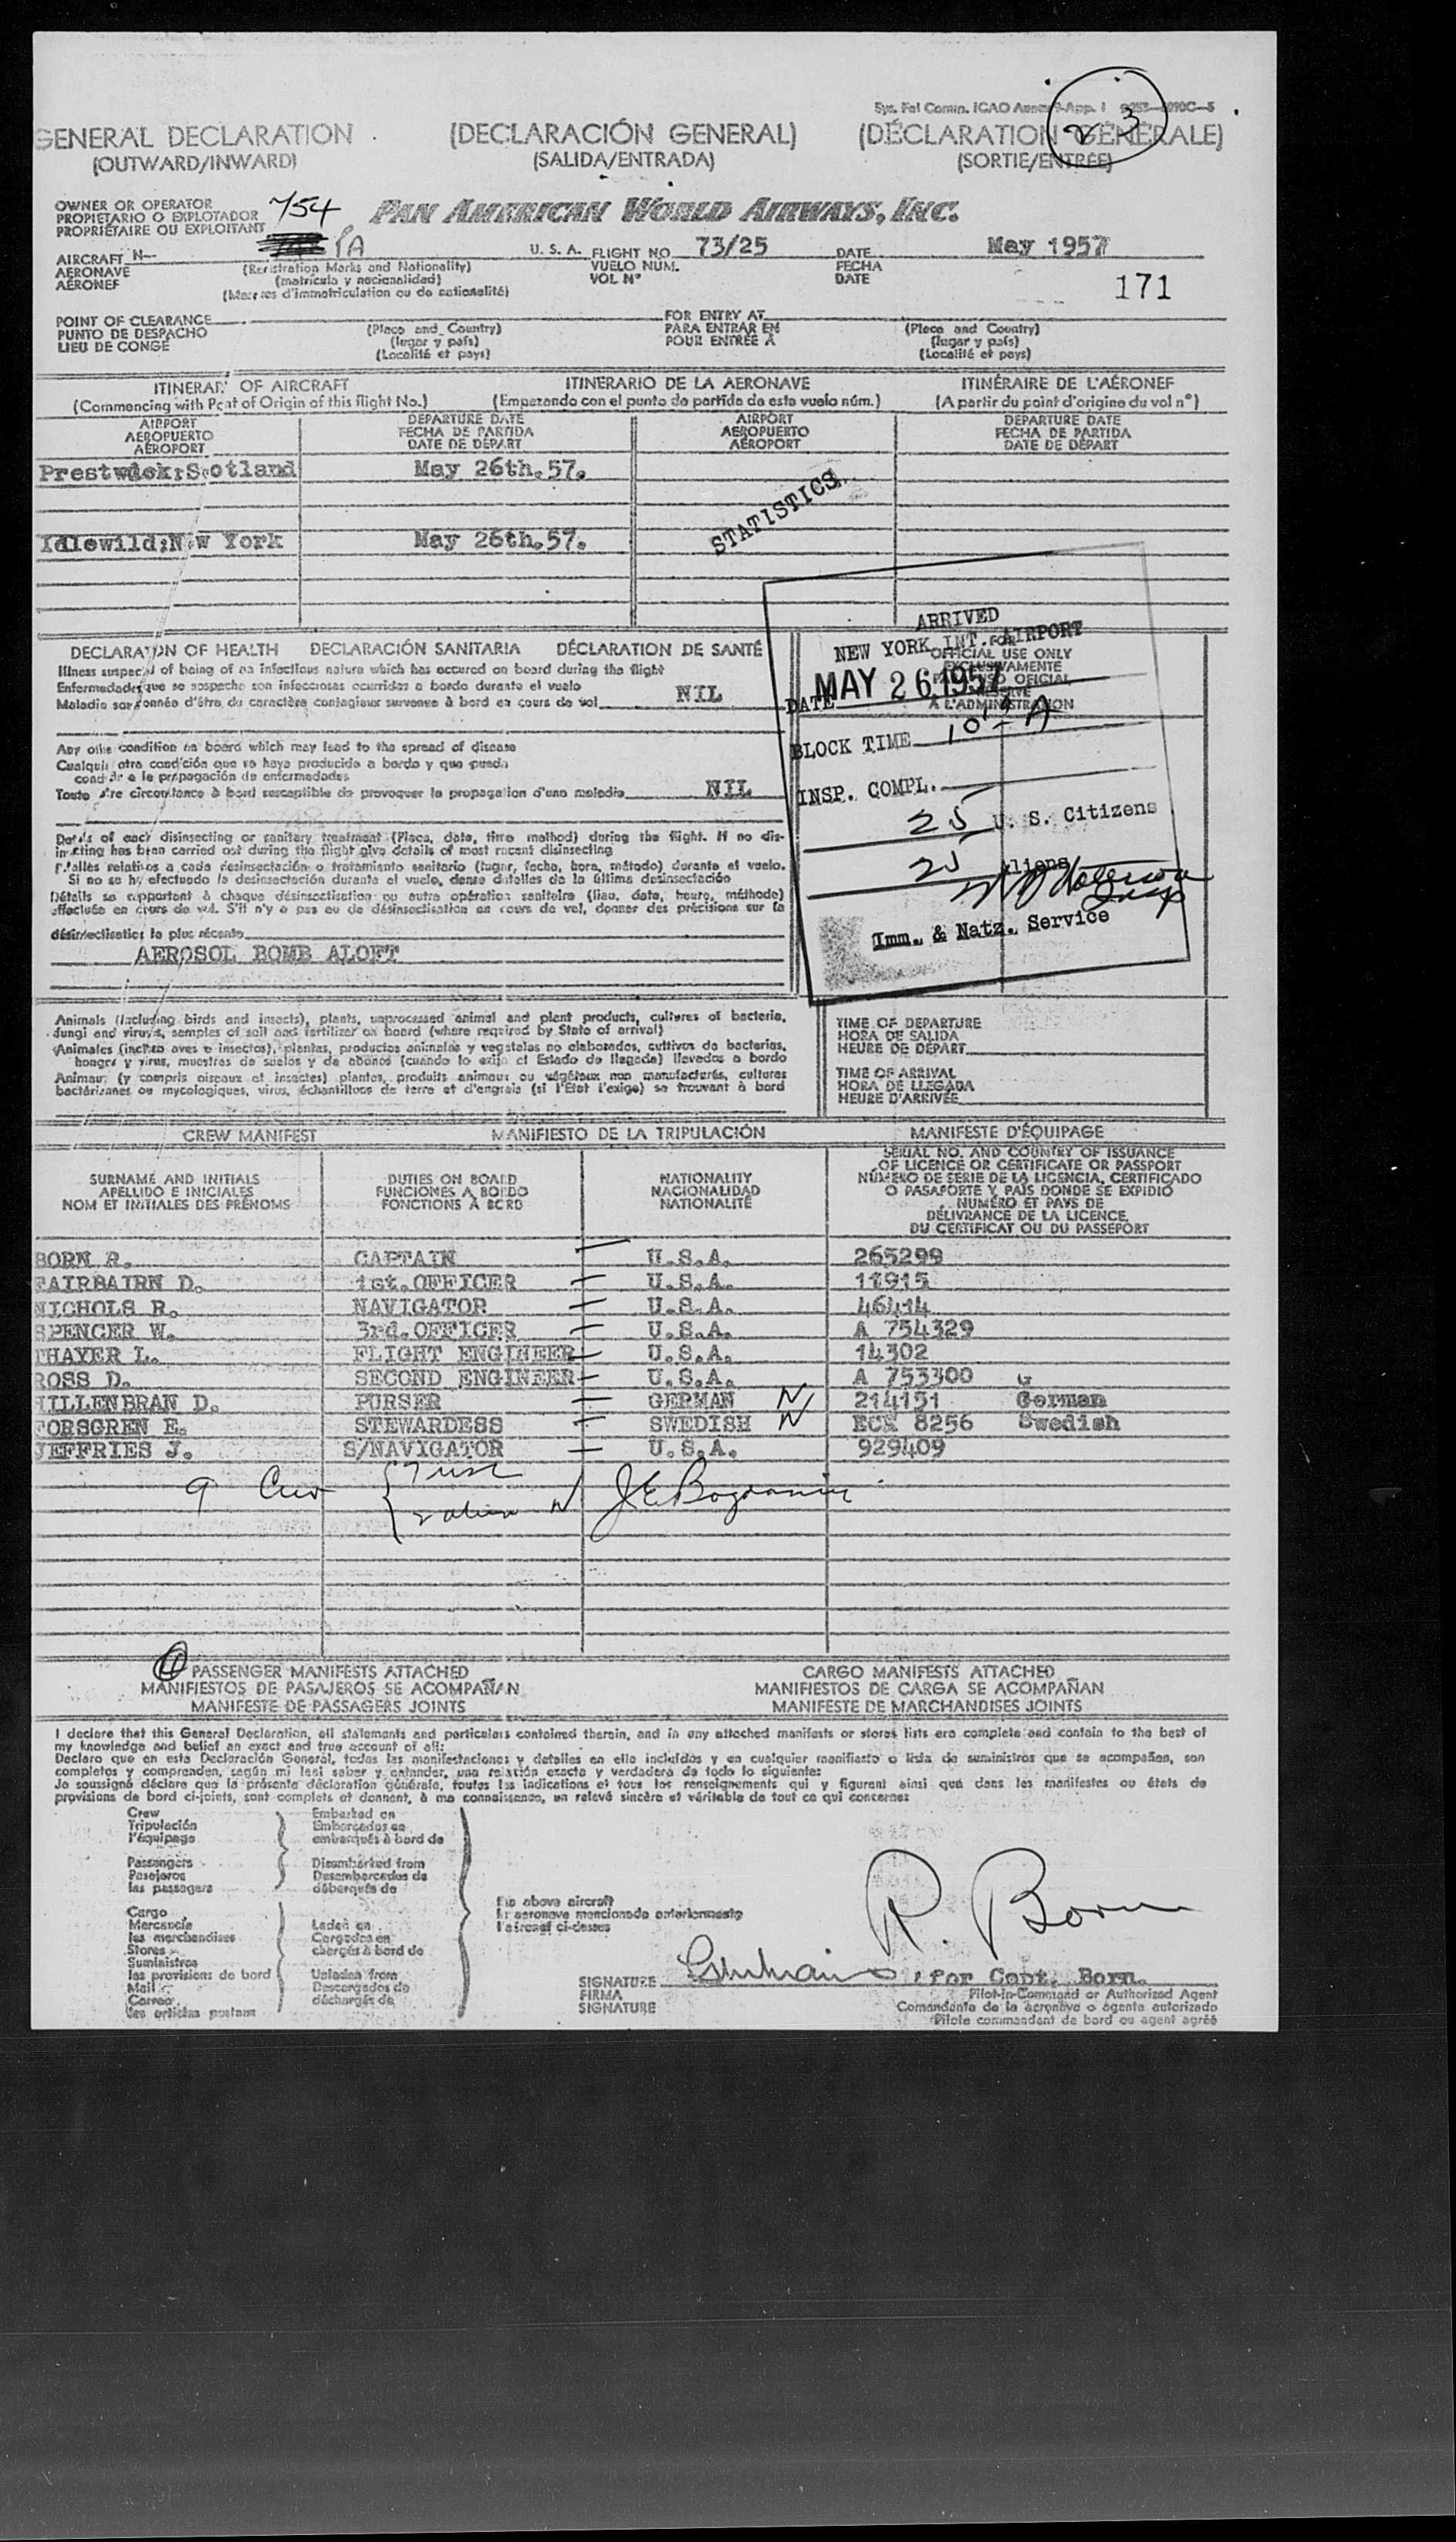 Sys. Fal Comm. ICAO Annex 9-App. 1
2 3
GENERAL DECLARATION (DECLARACIÓN GENERAL) (DÉCLARATION GÉNÉRALE)
(OUTWARD/INWARD) (SALIDA/ENTRADA) (SORTIE/ENTRÉE)
OWNER OR OPERATOR
PROPIETARIO O EXPLOTADOR
PROPRIÉTAIRE OU EXPLOITANT
754 PAN AMERICAN WORLD AIRWAYS, INC.
AIRCRAFT N— PA U. S. A. FLIGHT NO. 73/25 DATE May 1957
AERONAVE (Registration Marks and Nationality) VUELO NÚM. FECHA
AÉRONEF (matrícula y nacionalidad) VOL N° DATE
(Marques d'immatriculation ou de nationalité) 171
POINT OF CLEARANCE FOR ENTRY AT
PUNTO DE DESPACHO (Place and Country) PARA ENTRAR EN (Place and Country)
LIEU DE CONGÉ (lugar y país) POUR ENTRÉE À (lugar y país)
(Localité et pays) (Localité et pays)
ITINERARY OF AIRCRAFT ITINERARIO DE LA AERONAVE ITINÉRAIRE DE L'AÉRONEF
(Commencing with Point of Origin of this flight No.) (Empezando con el punto de partida de este vuelo núm.) (A partir du point d'origine du vol n°)
AIRPORT DEPARTURE DATE AIRPORT DEPARTURE DATE
AEROPUERTO FECHA DE PARTIDA AEROPUERTO FECHA DE PARTIDA
AÉROPORT DATE DE DÉPART AÉROPORT DATE DE DÉPART
Prestwick;Scotland May 26th.57.
STATISTICS
Idlewild;New York May 26th.57.
DECLARATION OF HEALTH DECLARACIÓN SANITARIA DÉCLARATION DE SANTÉ
Illness suspected of being of an infectious nature which has occured on board during the flight
Enfermedades que se sospeche son infecciosas ocurridas a bordo durante el vuelo
Maladie soupçonnée d'être du caractère contagieux survenue à bord en cours de vol NIL
Any other condition on board which may lead to the spread of disease
Cualquier otra condición que se haya producido a bordo y que pueda
conducir a la propagación de enfermedades
Toute autre circonstance à bord susceptible de provoquer la propagation d'une maladie NIL
Details of each disinsecting or sanitary treatment (Place, date, time method) during the flight. If no dis-
insecting has been carried out during the flight give details of most recent disinsecting
Detalles relativos a cada desinsectación o tratamiento sanitario (lugar, fecha, hora, método) durante el vuelo.
Si no se ha efectuado la desinsectación durante el vuelo, dense detalles de la última desinsectación
Détails se rapportant à chaque désinsectisation ou autre opération sanitaire (lieu, date, heure, méthode)
effectuée en cours de vol. S'il n'y a pas eu de désinsectisation en cours de vol, donner des précisions sur la
désinsectisation la plus récente
AEROSOL BOMB ALOFT
FOR OFFICIAL USE ONLY
EXCLUSIVAMENTE
PARA USO OFICIAL
RÉSERVÉ
À L'ADMINISTRATION
ARRIVED
NEW YORK INT. AIRPORT
DATE MAY 26 1957
BLOCK TIME 10 A
INSP. COMPL.
25 U. S. Citizens
25 Aliens
Insp
Imm. & Natz. Service
Animals (including birds and insects), plants, unprocessed animal and plant products, cultures of bacteria,
fungi and viruses, samples of soil and fertilizer on board (where required by State of arrival)
Animales (incluso aves e insectos), plantas, productos animales y vegetales no elaborados, cultivos de bacterias,
hongos y virus, muestras de suelos y de abonos (cuando lo exija el Estado de llegada) llevados a bordo
Animaux (y compris oiseaux et insectes) plantes, produits animaux ou végétaux non manufacturés, cultures
bactériennes ou mycologiques, virus, échantillons de terre et d'engrais (si l'État l'exige) se trouvant à bord
TIME OF DEPARTURE
HORA DE SALIDA
HEURE DE DÉPART
TIME OF ARRIVAL
HORA DE LLEGADA
HEURE D'ARRIVÉE
CREW MANIFEST MANIFIESTO DE LA TRIPULACIÓN MANIFESTE D'ÉQUIPAGE
SURNAME AND INITIALS
APELLIDO E INICIALES
NOM ET INITIALES DES PRÉNOMS
DUTIES ON BOARD
FUNCIONES A BORDO
FONCTIONS À BORD
NATIONALITY
NACIONALIDAD
NATIONALITÉ
SERIAL NO. AND COUNTRY OF ISSUANCE
OF LICENCE OR CERTIFICATE OR PASSPORT
NÚMERO DE SERIE DE LA LICENCIA, CERTIFICADO
O PASAPORTE Y PAÍS DONDE SE EXPIDIÓ
NUMÉRO ET PAYS DE
DÉLIVRANCE DE LA LICENCE,
DU CERTIFICAT OU DU PASSEPORT
BORN R. CAPTAIN — U.S.A. 265299
FAIRBAIRN D. 1st.OFFICER — U.S.A. 11915
NICHOLS R. NAVIGATOR — U.S.A. 46414
SPENCER W. 3rd.OFFICER — U.S.A. A 754329
THAYER L. FLIGHT ENGINEER — U.S.A. 14302
ROSS D. SECOND ENGINEER — U.S.A. A 753300 G
HILLENBRAN D. PURSER — GERMAN N 214151 German
FORSGREN E. STEWARDESS — SWEDISH N ECK 8256 Swedish
JEFFRIES J. S/NAVIGATOR — U.S.A. 929409
9 Crew 7 usc
2 alien N
4 PASSENGER MANIFESTS ATTACHED CARGO MANIFESTS ATTACHED
MANIFIESTOS DE PASAJEROS SE ACOMPAÑAN MANIFIESTOS DE CARGA SE ACOMPAÑAN
MANIFESTE DE PASSAGERS JOINTS MANIFESTE DE MARCHANDISES JOINTS
I declare that this General Declaration, all statements and particulars contained therein, and in any attached manifests or stores lists are complete and contain to the best of
my knowledge and belief an exact and true account of all:
Declaro que en esta Declaración General, todas las manifestaciones y detalles en ella incluídos y en cualquier manifiesto o lista de suministros que se acompañen, son
completos y comprenden, según mi leal saber y entender, una relación exacta y verdadera de todo lo siguiente:
Je soussigné déclare que la présente déclaration générale, toutes les indications et tous les renseignements qui y figurent ainsi que dans les manifestes ou états de
provisions de bord ci-joints, sont complets et donnent, à ma connaissance, un relevé sincère et véritable de tout ce qui concerne:
Crew Embarked on
Tripulación Embarcados en
l'équipage embarqués à bord de
Passengers Disembarked from
Pasajeros Desembarcados de
les passagers débarqués de
the above aircraft
la aeronave mencionada anteriormente
l'aéronef ci-dessus
Cargo
Mercancía Laden on
les marchandises Cargados en
Stores chargés à bord de
Suministros
les provisions de bord Unladen from
Mail Descargados de
Correo déchargés de
les articles postaux
R. Born
SIGNATURE , for Capt. Born.
FIRMA Pilot-in-Command or Authorized Agent
SIGNATURE Comandante de la aeronave o agente autorizado
Pilote commandant de bord ou agent agréé